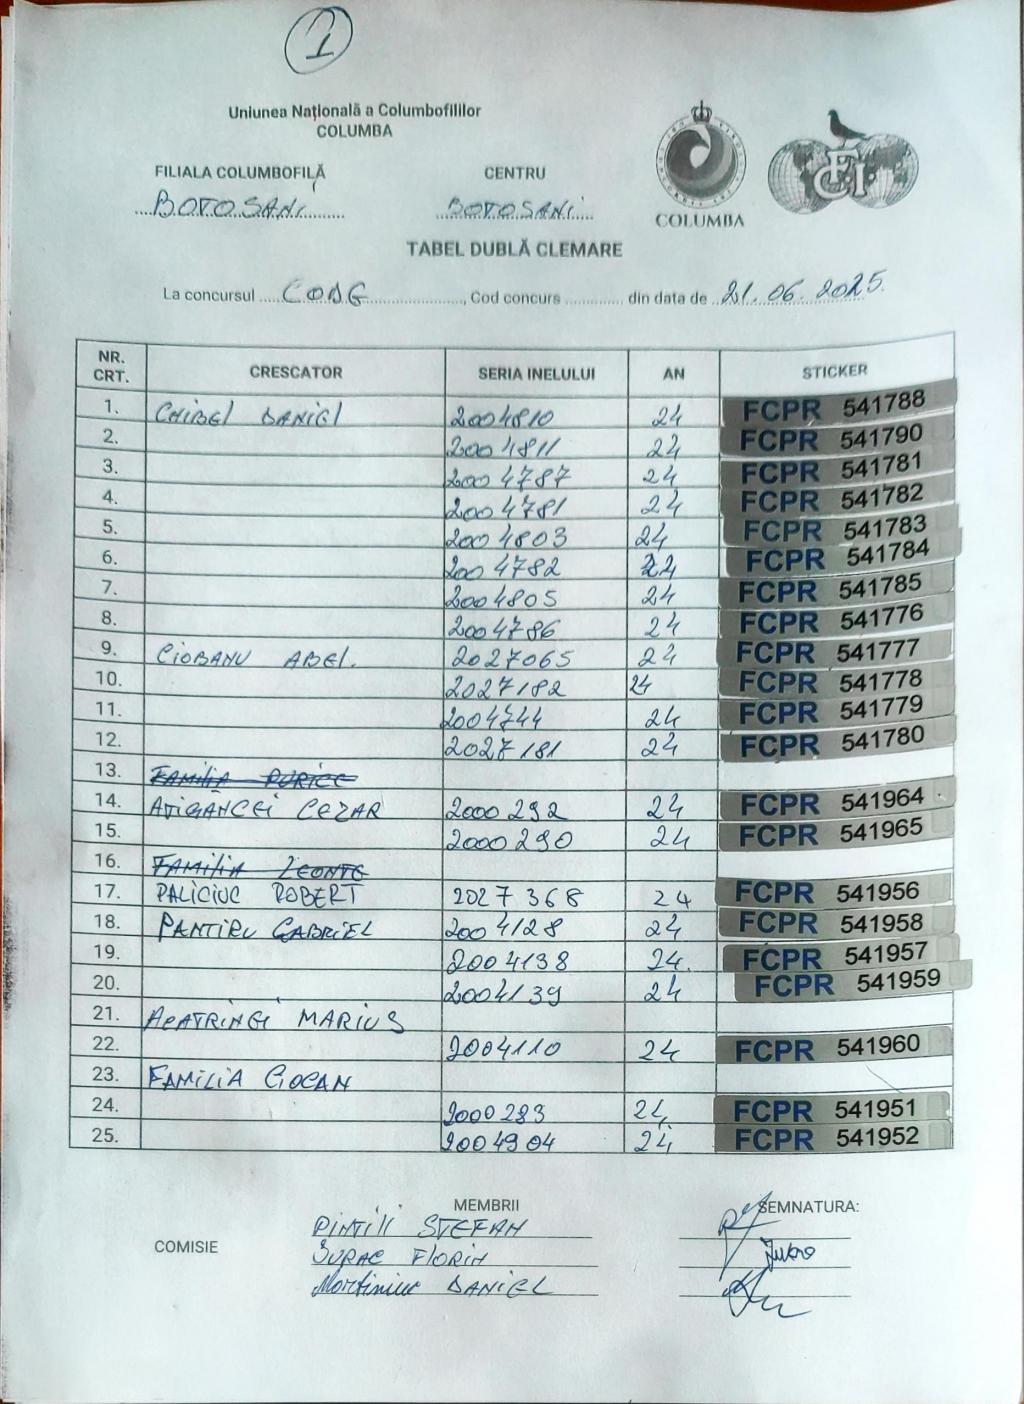 1
Uniunea Națională a Columbofililor
COLUMBA
FILIALA COLUMBOFILĂ
CENTRU
BOTOSANI
BOTOSANI
COLUMBA
FCI
TABEL DUBLĂ CLEMARE
La concursul .... ..................., Cod concurs ............ din data de 21.06.2025.
NR. CRT. CRESCATOR SERIA INELULUI AN STICKER
1. CHIBEL DANIEL 2004810 24 FCPR 541788
2. 2004811 24 FCPR 541790
3. 2004787 24 FCPR 541781
4. 2004781 24 FCPR 541782
5. 2004803 24 FCPR 541783
6. 2004782 24 FCPR 541784
7. 2004805 24 FCPR 541785
8. 2004786 24 FCPR 541776
9. CIOBANU ABEL. 2027065 24 FCPR 541777
10. 2027182 24 FCPR 541778
11. 2004744 24 FCPR 541779
12. 2027181 24 FCPR 541780
13. FAMILIA PURICE
14. ATIGANCEI CEZAR 2000292 24 FCPR 541964
15. 2000290 24 FCPR 541965
16. FAMILIA LEONTE
17. PALICIUC ROBERT 2027368 24 FCPR 541956
18. PANTIRU GABRIEL 2004128 24 FCPR 541958
19. 2004138 24. FCPR 541957
20. 2004139 24 FCPR 541959
21. APATRINEI MARIUS
22. 2004110 24 FCPR 541960
23. FAMILIA CIOCAN
24. 2000283 24 FCPR 541951
25. 2004904 24 FCPR 541952
MEMBRII
SEMNATURA:
COMISIE
PINTILI STEFAN
FLORIN
DANIEL